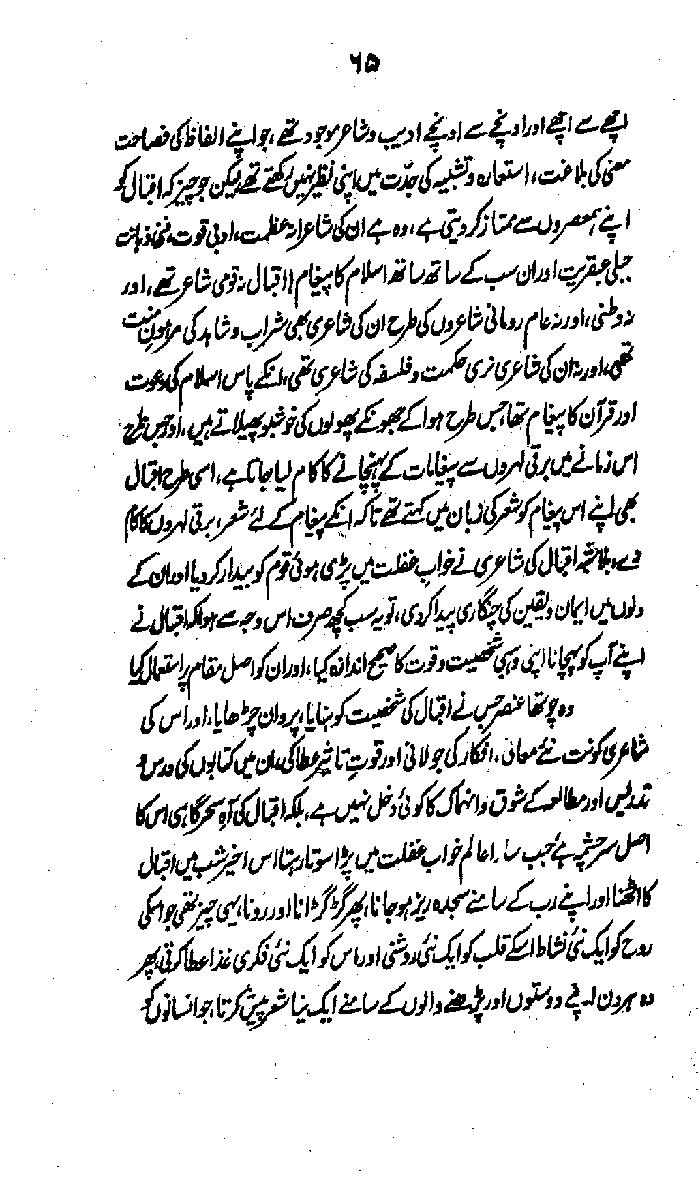 ۶۵
اچھے سے اچھے اور اونچے سے اونچے ادیب و شاعر موجود تھے، جو اپنے الفاظ کی فصاحت
معنی کی بلاغت، استعارہ و تشبیہ کی جدّت میں اپنی نظیر نہیں رکھتے تھے لیکن جو چیز کہ اقبال کو
اپنے ہمعصروں سے ممتاز کر دیتی ہے، وہ ہے ان کی شاعرانہ عظمت، ادبی قوت، فنی ذہانت
جبلی عبقریت اور ان سب کے ساتھ ساتھ اسلام کا پیغام! اقبال نہ قومی شاعر تھے، اور
نہ وطنی، اور نہ عام رومانی شاعروں کی طرح ان کی شاعری بھی شراب و شاہد کی مرہونِ منت
تھی، اور نہ ان کی شاعری نری حکمت و فلسفہ کی شاعری تھی، انکے پاس اسلام کی دعوت
اور قرآن کا پیغام تھا، جس طرح ہوا کے جھونکے پھولوں کی خوشبو پھیلاتے ہیں، اور جس طرح
اس زمانے میں برقی لہروں سے پیغامات کے پہنچانے کا کام لیا جاتا ہے، اسی طرح اقبال
بھی اپنے اس پیغام کو شعر کی زبان میں کہتے تھے تاکہ انکے پیغام کے لئے شعر، برقی لہروں کا کام
دے، بلا شبہ اقبال کی شاعری نے خوابِ غفلت میں پڑی ہوئی قوم کو بیدار کر دیا اور ان کے
دلوں میں ایمان و یقین کی چنگاری پیدا کر دی، تو یہ سب کچھ صرف اس وجہ سے ہوا کہ اقبال نے
اپنے آپ کو پہچانا اپنی وہبی شخصیت و قوت کا صحیح اندازہ کیا، اور ان کو اصل مقام پر استعمال کیا
وہ چوتھا عنصر جس نے اقبال کی شخصیت کو بنایا، پروان چڑھایا، اور اس کی
شاعری کو نت نئے معانی، افکار کی جولانی اور قوتِ تاثیر عطا کی، ان میں کتابوں کی درس و
تدریس اور مطالعہ کے شوق و انہماک کا کوئی دخل نہیں ہے، بلکہ اقبال کی آہِ سحر گاہی اس کا
اصل سرچشمہ ہے جب سارا عالم خواب غفلت میں پڑا سوتا رہتا اس اخیر شب میں اقبال
کا اٹھنا اور اپنے رب کے سامنے سجدہ ریز ہو جانا، پھر گڑگڑانا اور رونا، یہی چیز تھی جو اسکی
روح کو ایک نئی نشاط اسکے قلب کو ایک نئی روشنی اور اس کو ایک نئی فکری غذا عطا کرتی، پھر
وہ ہر دن اپنے دوستوں اور پڑھنے والوں کے سامنے ایک نیا شعر پیش کرتا، جو انسانوں کو